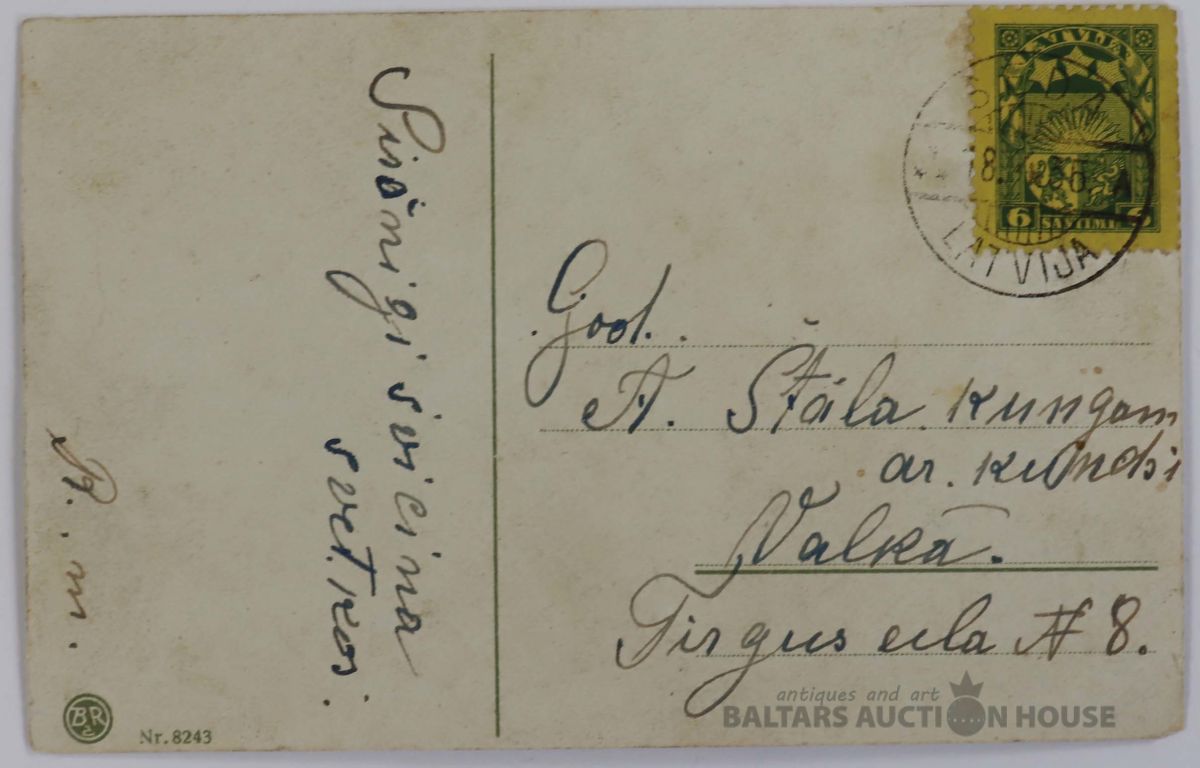 Sirsnigi sveicina
svētkos.
A. m.
Nr. 8243
LATVIJA
6 SANTIMI
LATVIJA
God.
A. Stāla kungam
ar. kundzi
Valkā.
Tirgus iela № 8.
antiques and art
BALTARS AUCTION HOUSE